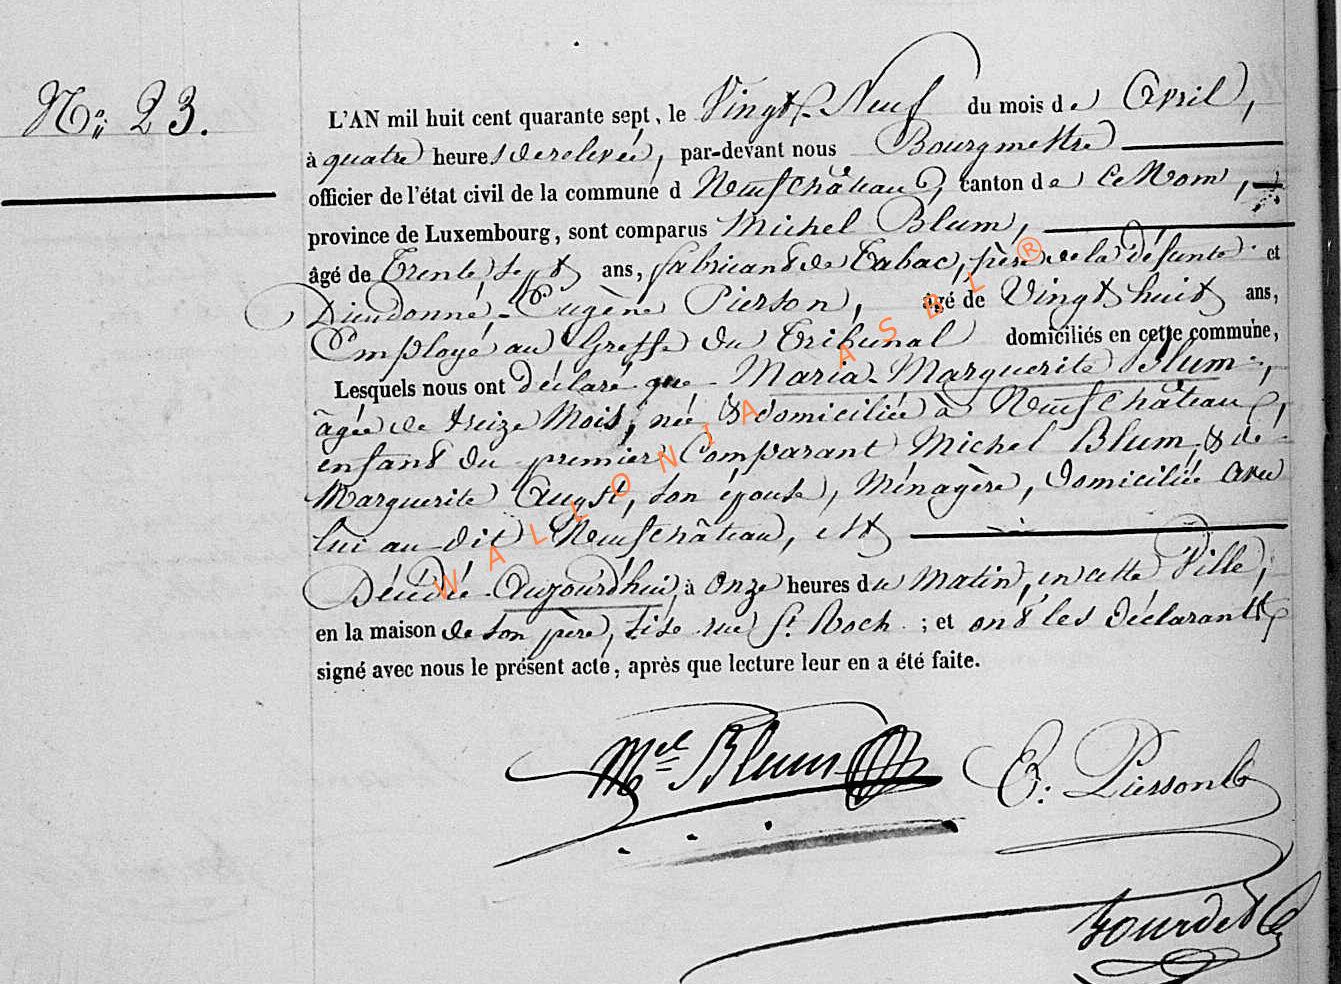 No. 23.
L'AN mil huit cent quarante sept, le Vingt-Neuf du mois de Avril,
à quatre heures de relevée, par-devant nous Bourgmestre
officier de l'état civil de la commune d Neufchâteau, canton de ce Nom,
province de Luxembourg, sont comparus Michel Blum,
âgé de Trente, sept ans, fabricant de Tabac, père de la défunte et
Dieudonné-Eugène Pierson, âgé de Vingt huit ans,
Employé au Greffe du Tribunal domiciliés en cette commune,
Lesquels nous ont déclaré que Maria-Marguerite Blum,
âgée de treize Mois, née & domiciliée à Neufchâteau,
enfant du premier Comparant Michel Blum, & de
Marguerite August, son épouse, Ménagère, domiciliée avec
lui au dit Neufchâteau, est
Décédée Aujourd'hui, à Onze heures du Matin, en cette Ville,
en la maison de son père, sise rue St. Roch ; et ont les déclarants
signé avec nous le présent acte, après que lecture leur en a été faite.
Mel Blum E. Pierson
WALLONIA ASBL ®